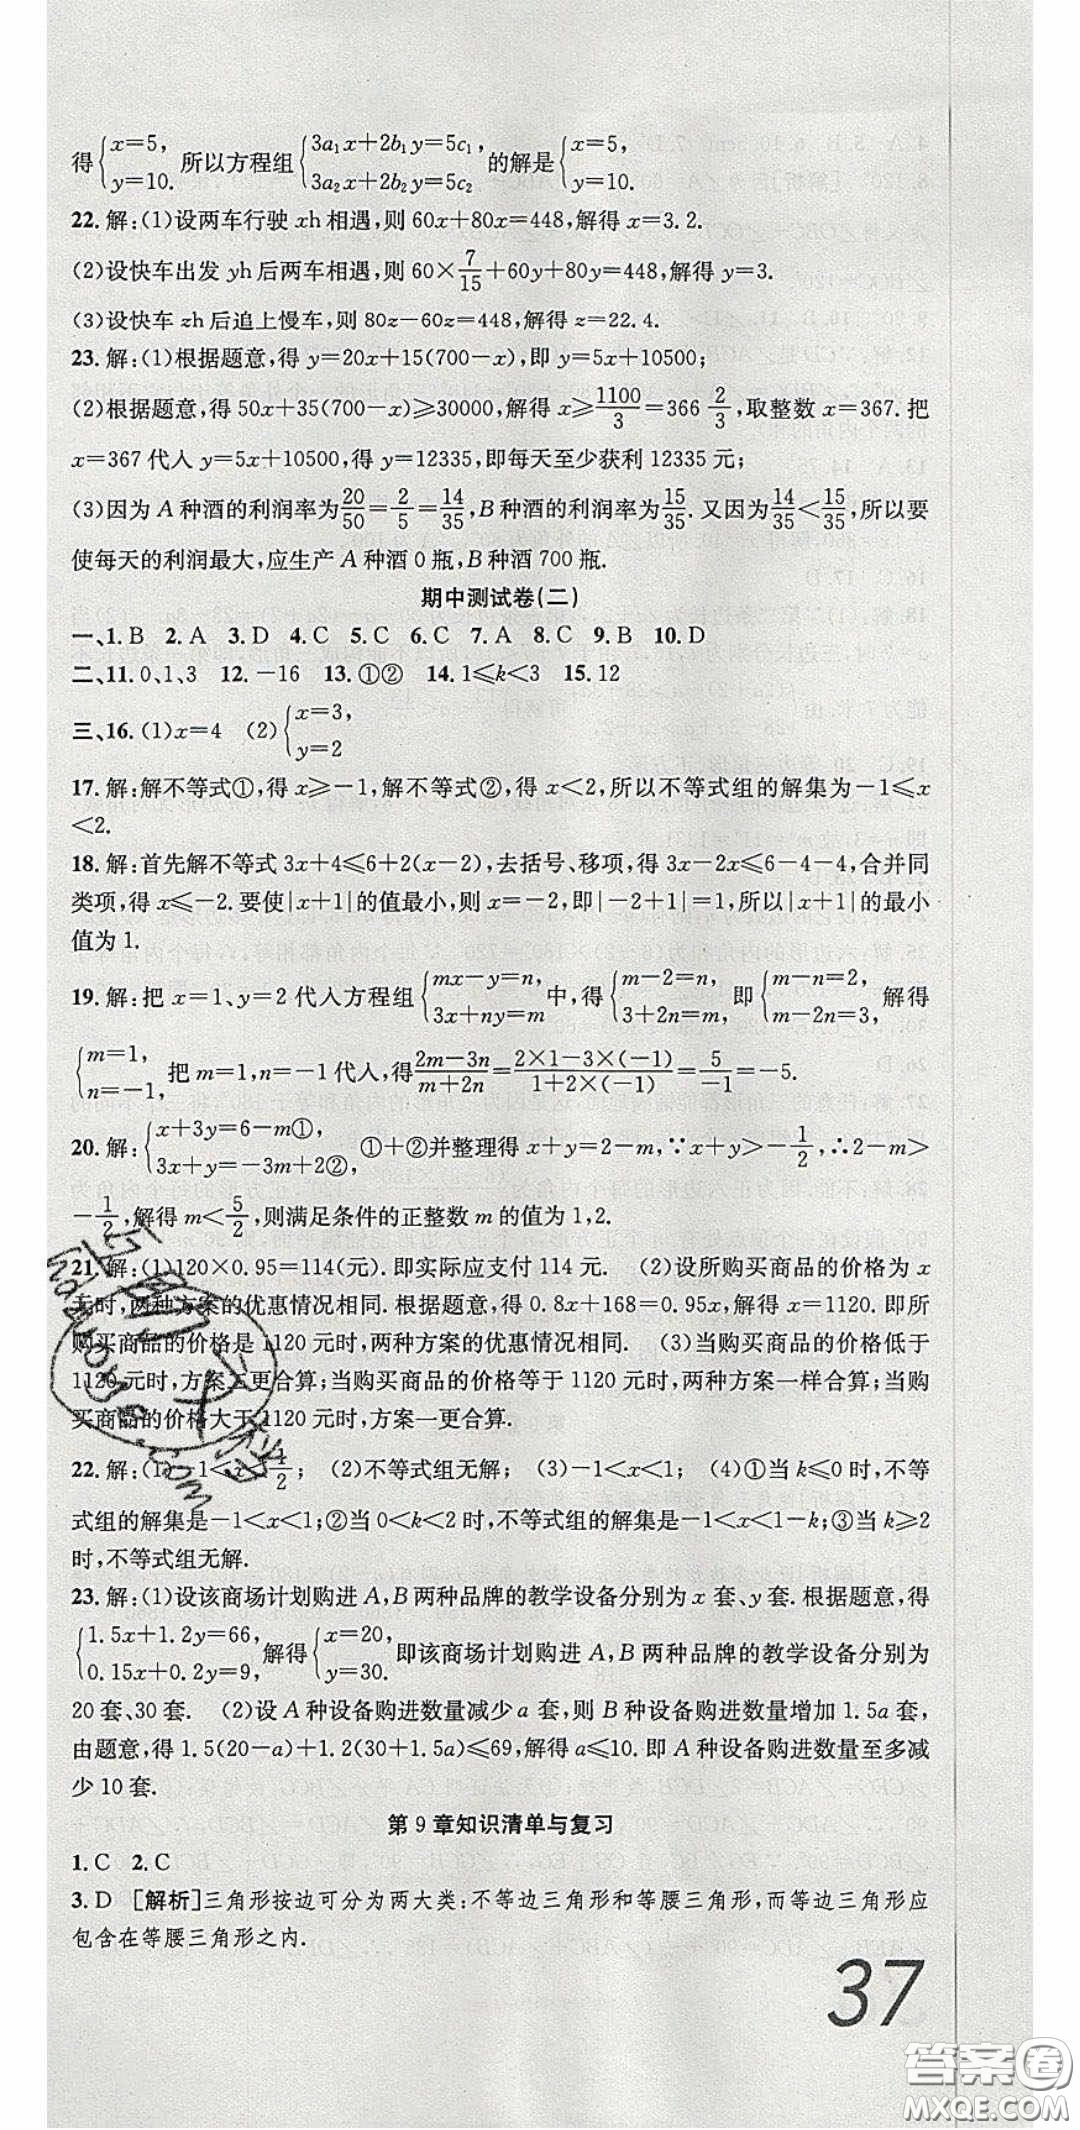 得{x=5, y=10. 所以方程组{3a₁x+2b₁y=5c₁, 3a₂x+2b₂y=5c₂ 的解是{x=5, y=10.
22. 解:(1)设两车行驶 xh 相遇,则 60x+80x=448,解得 x=3.2.
(2)设快车出发 yh 后两车相遇,则 60×7/15+60y+80y=448,解得 y=3.
(3)设快车 zh 后追上慢车,则 80z-60z=448,解得 z=22.4.
23. 解:(1)根据题意,得 y=20x+15(700-x),即 y=5x+10500;
(2)根据题意,得 50x+35(700-x)≥30000,解得 x≥1100/3=366 2/3,取整数 x=367. 把
x=367 代人 y=5x+10500,得 y=12335,即每天至少获利 12335 元;
(3)因为 A 种酒的利润率为20/50=2/5=14/35,B 种酒的利润率为15/35. 又因为14/35<15/35,所以要
使每天的利润最大,应生产 A 种酒 0 瓶,B 种酒 700 瓶.
期中测试卷(二)
一、1. B 2. A 3. D 4. C 5. C 6. C 7. A 8. C 9. B 10. D
二、11. 0、1、3 12. -16 13. ①② 14. 1≤k<3 15. 12
三、16. (1)x=4 (2){x=3, y=2
17. 解:解不等式①,得 x≥-1,解不等式②,得 x<2,所以不等式组的解集为-1≤x
<2.
18. 解:首先解不等式 3x+4≤6+2(x-2),去括号、移项,得 3x-2x≤6-4-4,合并同
类项,得 x≤-2. 要使|x+1|的值最小,则 x=-2,即|-2+1|=1,所以|x+1|的最小
值为 1.
19. 解:把 x=1、y=2 代人方程组{mx-y=n, 3x+ny=m 中,得{m-2=n, 3+2n=m, 即{m-n=2, m-2n=3, 解得
{m=1, n=-1, 把 m=1,n=-1 代人,得(2m-3n)/(m+2n)=(2×1-3×(-1))/(1+2×(-1))=5/-1=-5.
20. 解:{x+3y=6-m①, 3x+y=-3m+2②, ①+②并整理得 x+y=2-m,∵x+y>-1/2,∴2-m>
-1/2,解得 m<5/2,则满足条件的正整数 m 的值为 1,2.
21. 解:(1)120×0.95=114(元). 即实际应支付 114 元. (2)设所购买商品的价格为 x
元时,两种方案的优惠情况相同. 根据题意,得 0.8x+168=0.95x,解得 x=1120. 即所
购买商品的价格是 1120 元时,两种方案的优惠情况相同. (3)当购买商品的价格低于
1120 元时,方案二更合算;当购买商品的价格等于 1120 元时,两种方案一样合算;当购
买商品的价格大于 1120 元时,方案一更合算.
22. 解:(1)-1<x<1/2; (2)不等式组无解; (3)-1<x<1; (4)①当 k≤0 时,不等
式组的解集是-1<x<1;②当 0<k<2 时,不等式组的解集是-1<x<1-k;③当 k≥2
时,不等式组无解.
23. 解:(1)设该商场计划购进 A,B 两种品牌的教学设备分别为 x 套、y 套. 根据题意,得
{1.5x+1.2y=66, 0.15x+0.2y=9, 解得{x=20, y=30. 即该商场计划购进 A,B 两种品牌的教学设备分别为
20 套、30 套. (2)设 A 种设备购进数量减少 a 套,则 B 种设备购进数量增加 1.5a 套,
由题意,得 1.5(20-a)+1.2(30+1.5a)≤69,解得 a≤10. 即 A 种设备购进数量至多减
少 10 套.
第 9 章知识清单与复习
1. C 2. C
3. D [解析]三角形按边可分为两大类:不等边三角形和等腰三角形,而等边三角形应
包含在等腰三角形之内.
37
答案圈
MXQE.COM